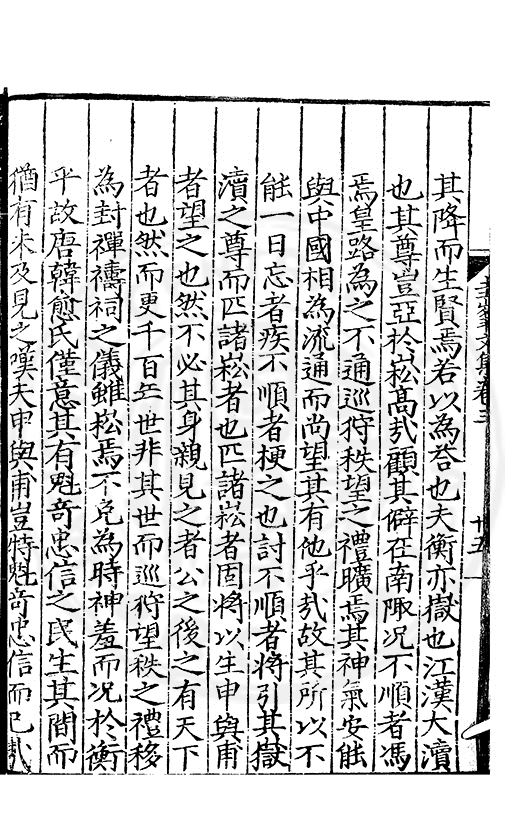 其降而生賢焉若以為咎也夫衡亦嶽也江漢大瀆
也其尊豈亞於崧高㢤顧其僻在南陬况不順者馮
焉皇路為之不通巡狩秩望之禮曠焉其神氣安能
與中國相為流通而尚望其有他乎㢤故其所以不
能一日忘者疾不順者梗之也討不順者將引其嶽
瀆之尊而匹諸崧者也匹諸崧者固將以生申與甫
者望之也然不必其身親見之者公之後之有天下
者也然而更千百年世非其世而巡狩望秩之禮移
為封禪禱祠之儀雖崧焉不免為時神羞而况於衡
乎故唐韓愈氏僅意其有魁竒忠信之民生其間而
猶有未及見之嘆夫申與甫豈特魁竒忠信而已㢤
文集卷三
卅五